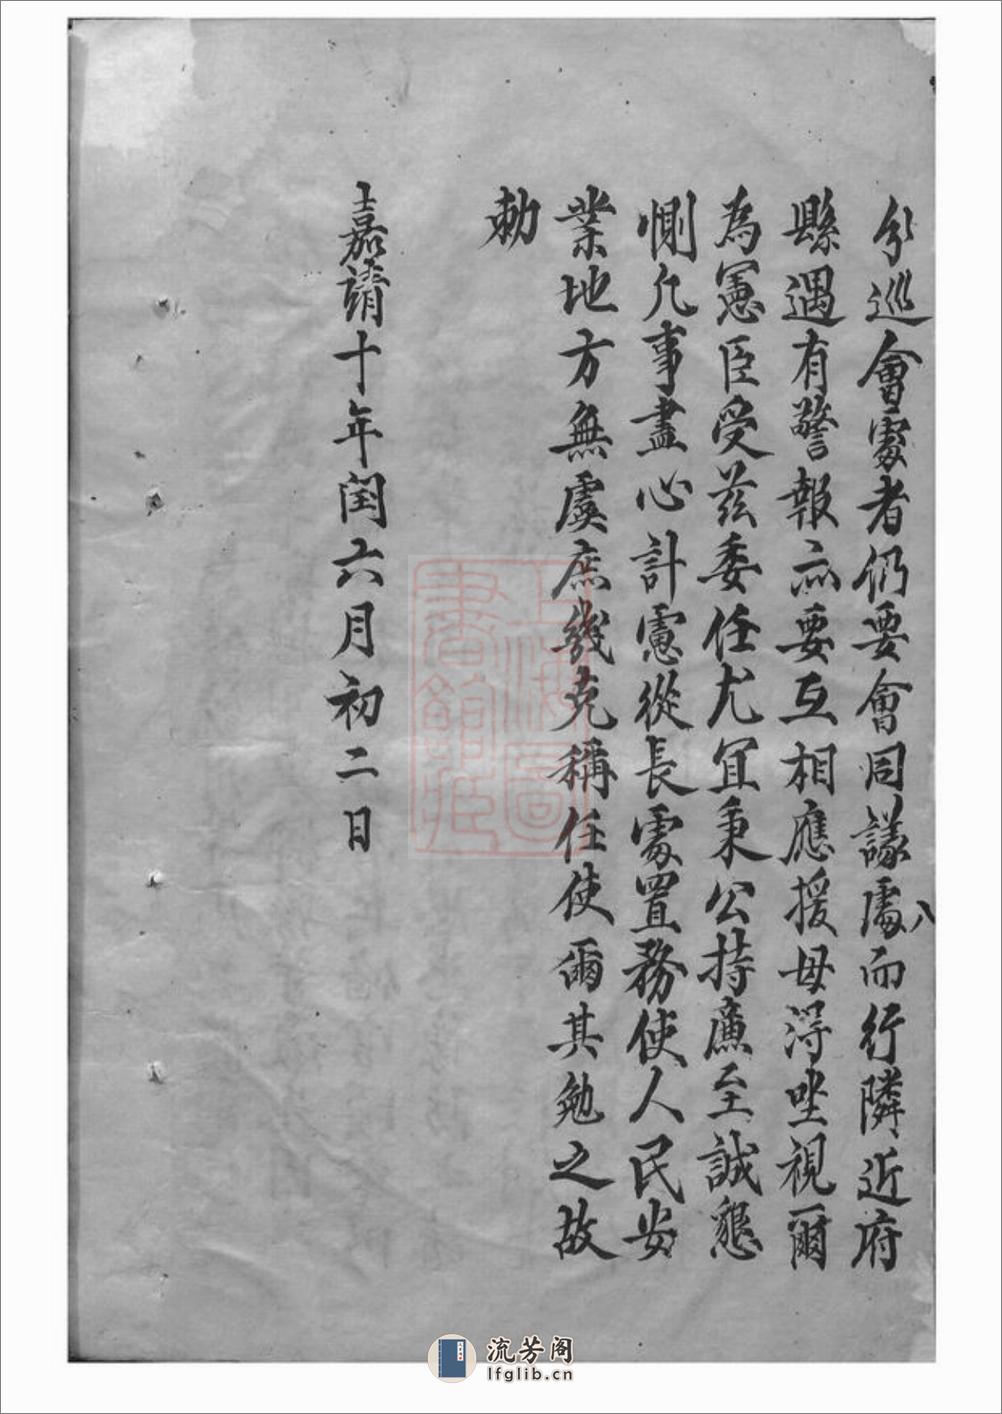 分巡會䖏者仍要會同議處而行隣近府
八
縣遇有警報亦要互相應援毋淂坐視爾
為憲臣受兹委任尤宜秉公持廉至誠懇
惻凡事盡心計慮從長䖏置務使人民安
業地方無虞庶幾克稱任使爾其勉之故
勅
嘉靖十年閏六月初二日
上海圖書館藏
流芳阁
lfglib.cn